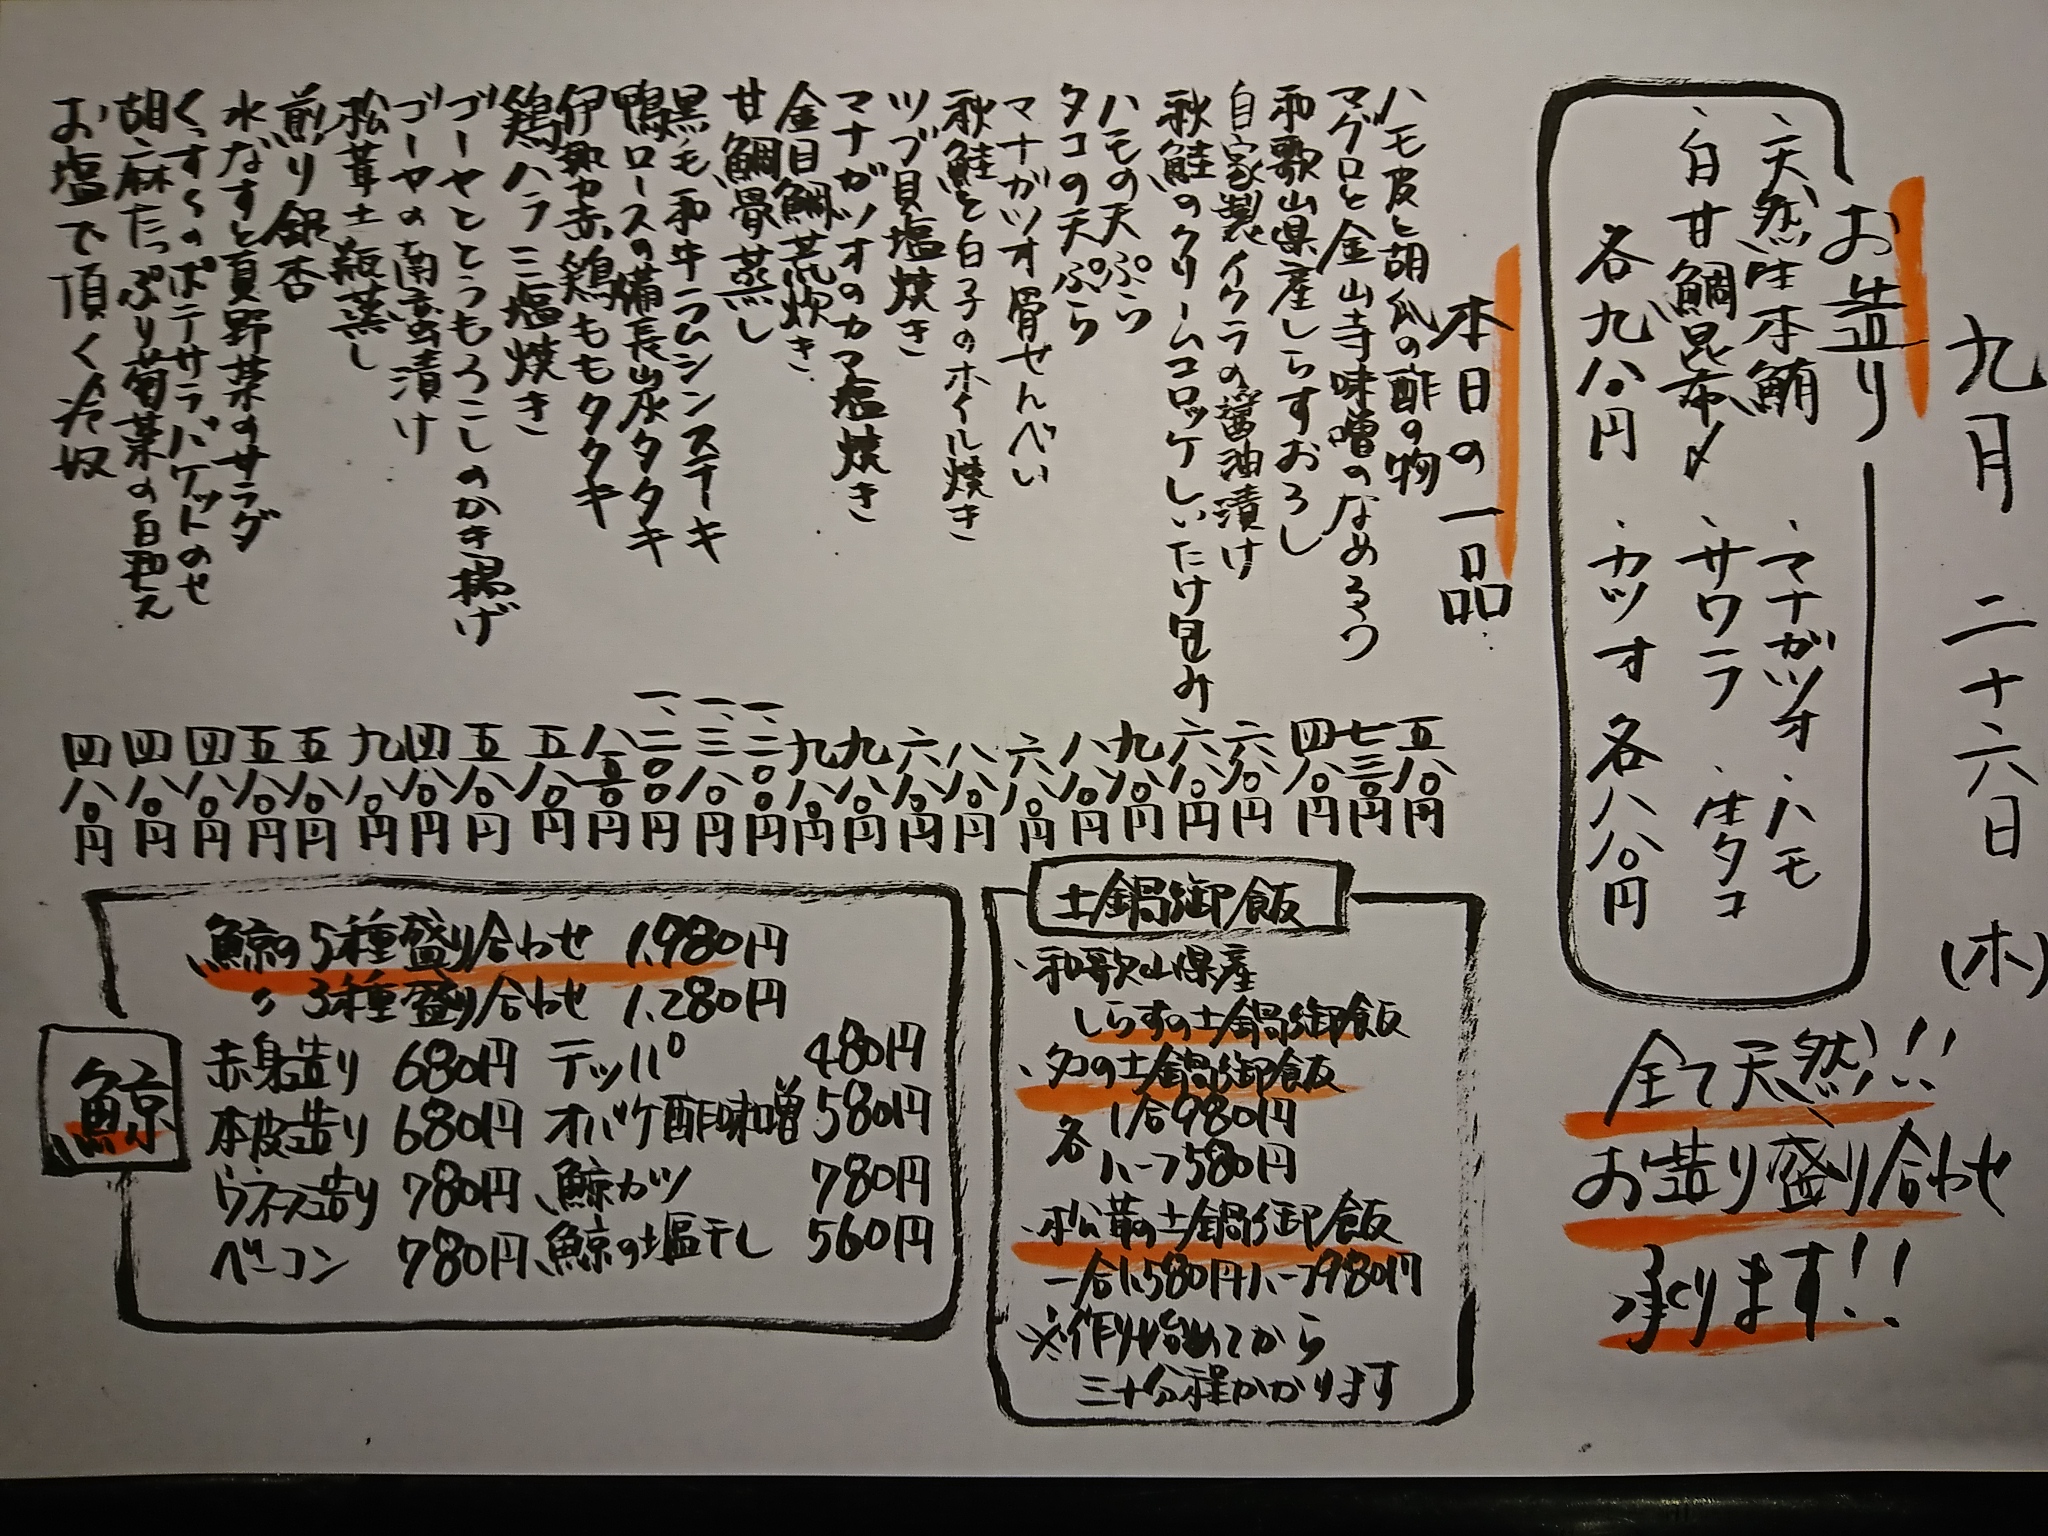 九月 二十六日 (木)
お造り
、天然生本鮪 、マナガツオ 、ハモ
、白甘鯛昆布〆 、サワラ 、生タコ
各九八〇円 、カツオ 各八八〇円
全て天然!!
お造り盛り合わせ
承ります!!
本日の一品
ハモ皮と胡瓜の酢の物 五八〇円
マグロと金山寺味噌のなめろう 七三〇円
和歌山県産しらすおろし 四八〇円
自家製イクラの醤油漬け 六八〇円
秋鮭のクリームコロッケしいたけ包み 六八〇円
ハモの天ぷら 九八〇円
タコの天ぷら 八八〇円
マナガツオ骨せんべい 六八〇円
秋鮭と白子のホイル焼き 八八〇円
ツブ貝塩焼き 六八〇円
マナガツオのカマ塩焼き 九八〇円
金目鯛荒炊き 九八〇円
甘鯛骨蒸し 一、二〇〇円
黒毛和牛ラムシンステーキ 一、三八〇円
鴨ロースの備長炭タタキ 一、二〇〇円
伊勢赤鶏ももタタキ 八五〇円
鶏ハラミ塩焼き 五八〇円
ゴーヤととうもろこしのかき揚げ 五八〇円
ゴーヤの南蛮漬け 四八〇円
松茸土瓶蒸し 九八〇円
煎り銀杏 五八〇円
水なすと夏野菜のサラダ 五八〇円
くっすぐのポテサラバケットのせ 四八〇円
胡麻たっぷり菊菜の白和え 四八〇円
お塩で頂く冷奴 四八〇円
土鍋御飯
、和歌山県産
しらすの土鍋御飯
、タコの土鍋御飯
各 1合980円
ハーフ580円
、松茸の土鍋御飯
一合1,580円ハーフ980円
※作り始めてから
三十分程かかります
鯨
鯨の5種盛り合わせ 1,980円
〃 3種盛り合わせ 1,280円
赤身造り 680円 テッパ 480円
本皮造り 680円 オバケ酢味噌 580円
ウネス造り 780円 鯨カツ 780円
ベーコン 780円 鯨の塩干し 560円